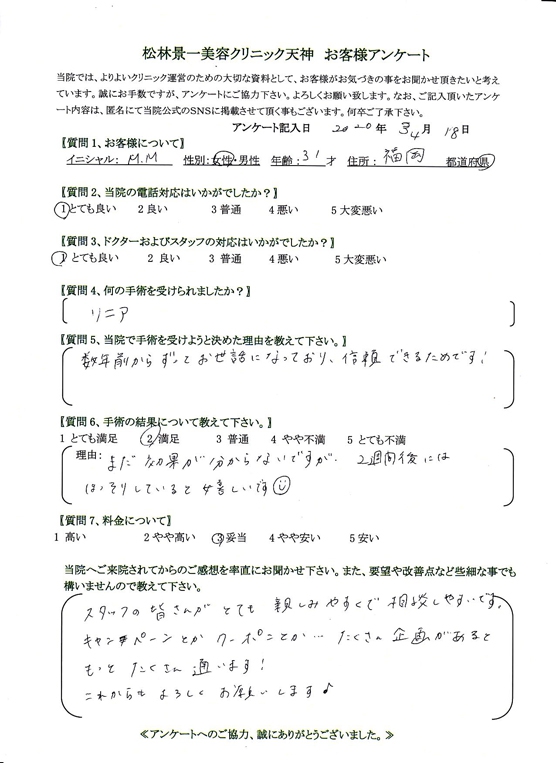 松林景一美容クリニック天神　お客様アンケート
当院では、よりよいクリニック運営のための大切な資料として、お客様がお気づきの事をお聞かせ頂きたいと考え
ています。誠にお手数ですが、アンケートにご協力下さい。よろしくお願い致します。なお、ご記入頂いたアンケ
ート内容は、匿名にて当院公式のSNSに掲載させて頂く事もございます。何卒ご了承下さい。
アンケート記入日　2020年　4月　18日
【質問1、お客様について】
イニシャル： M.M　性別：女性・男性　年齢：31才　住所： 福岡　都道府県
【質問2、当院の電話対応はいかがでしたか？】
1 とても良い　2 良い　3 普通　4 悪い　5 大変悪い
【質問3、ドクターおよびスタッフの対応はいかがでしたか？】
1 とても良い　2 良い　3 普通　4 悪い　5 大変悪い
【質問4、何の手術を受けられましたか？】
リニア
【質問5、当院で手術を受けようと決めた理由を教えて下さい。】
数年前からずっとお世話になっており、信頼できるためです！
【質問6、手術の結果について教えて下さい。】
1 とても満足　2 満足　3 普通　4 やや不満　5 とても不満
理由： まだ効果が分からないですが、2週間後には
ほっそりしていると嬉しいです☺
【質問7、料金について】
1 高い　2 やや高い　3 妥当　4 やや安い　5 安い
当院へご来院されてからのご感想を率直にお聞かせ下さい。また、要望や改善点など些細な事でも
構いませんので教えて下さい。
スタッフの皆さんがとても親しみやすくて相談しやすいです。
キャンペーンとかクーポンとか… たくさん企画があると
もっとたくさん通います！
これからもよろしくお願いします♪
≪アンケートへのご協力、誠にありがとうございました。≫